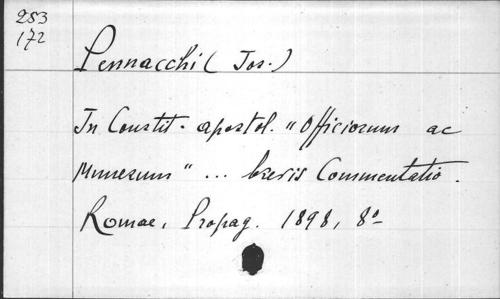 283
172
Pennacchi (Jos.)
In Constit. apostol. "Officiorum ac
Munerum" ... brevis Commentatio.
Romae, Propag. 1898, 8º